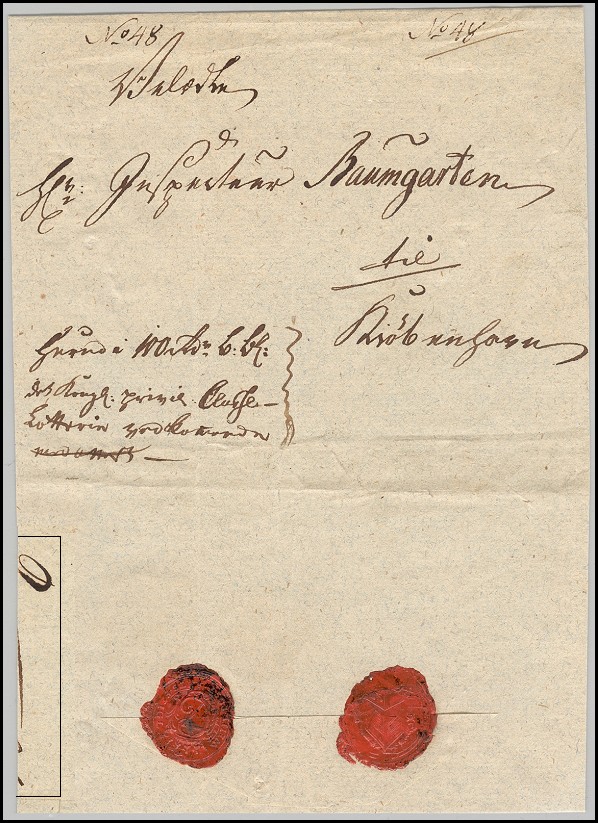 No 48 No 48
Velædle
Hr: Inspecteur Baumgarten
til
Kiöbenhavn
Herudi 100 Rdr B: Bl:
det Kongl: privil: Classe-
Lotterie vedkommende